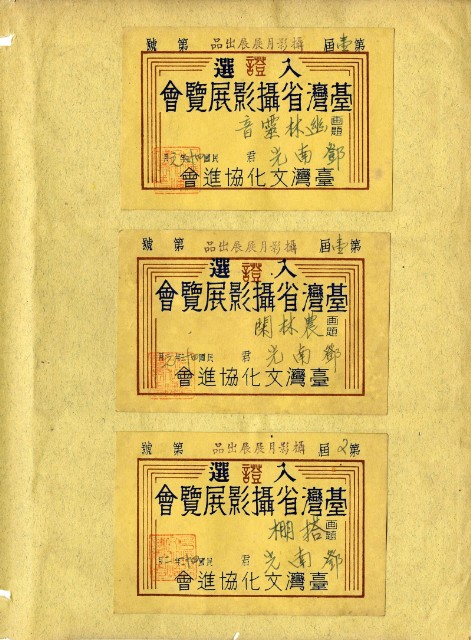 第壹屆 攝影月展展出品 第 號
入證選
臺灣省攝影展覽會
画題 幽林靈音
鄧南光 君 民國四十年元月
臺灣文化協進會
第壹屆 攝影月展展出品 第 號
入證選
臺灣省攝影展覽會
画題 農林閑
鄧南光 君 民國
臺灣文化協進會
第2屆 攝影月展展出品 第 號
入證選
臺灣省攝影展覽會
画題 搭棚
鄧南光 君 民國四十年二月
臺灣文化協進會